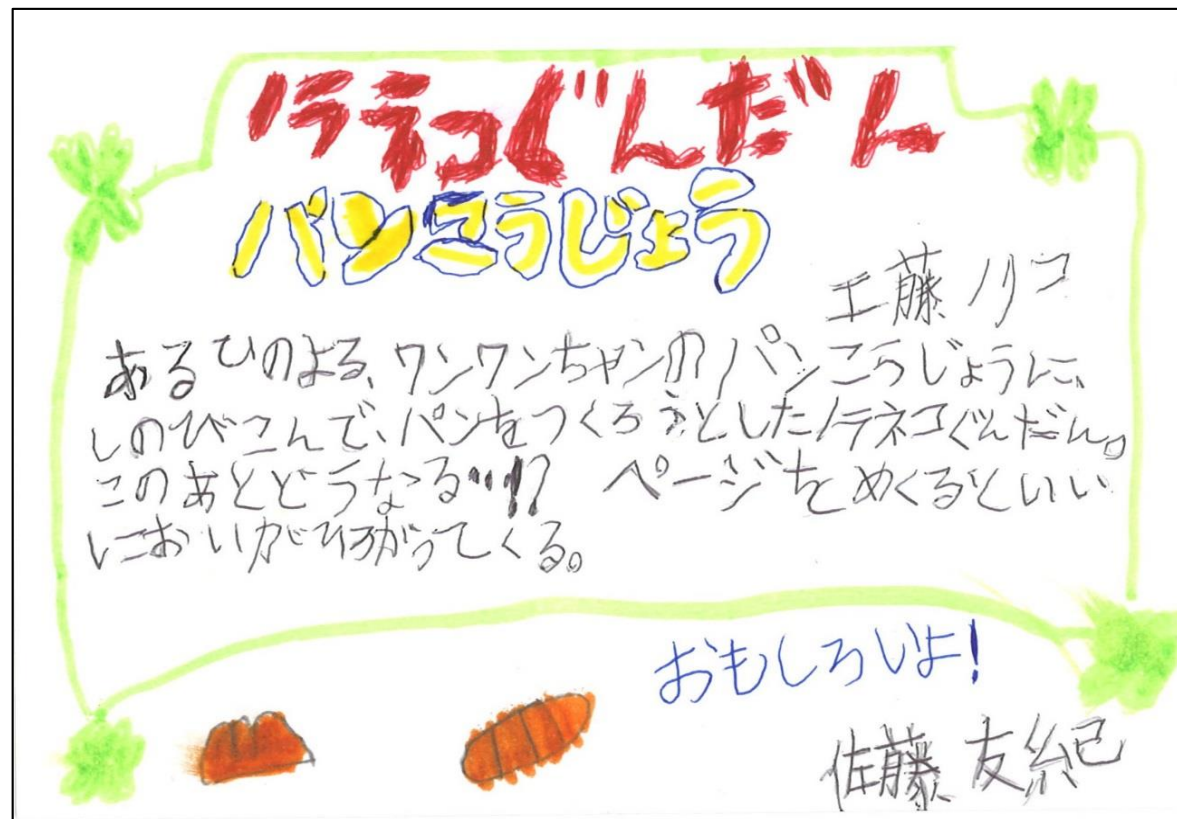 ノラネコぐんだん
パンこうじょう
工藤ノリコ
あるひのよる、ワンワンちゃんのパンこうじょうに、
しのびこんで、パンをつくろうとしたノラネコぐんだん。
このあとどうなる…!? ページをめくるといい
においがひろがってくる。
おもしろいよ!
佐藤友紀